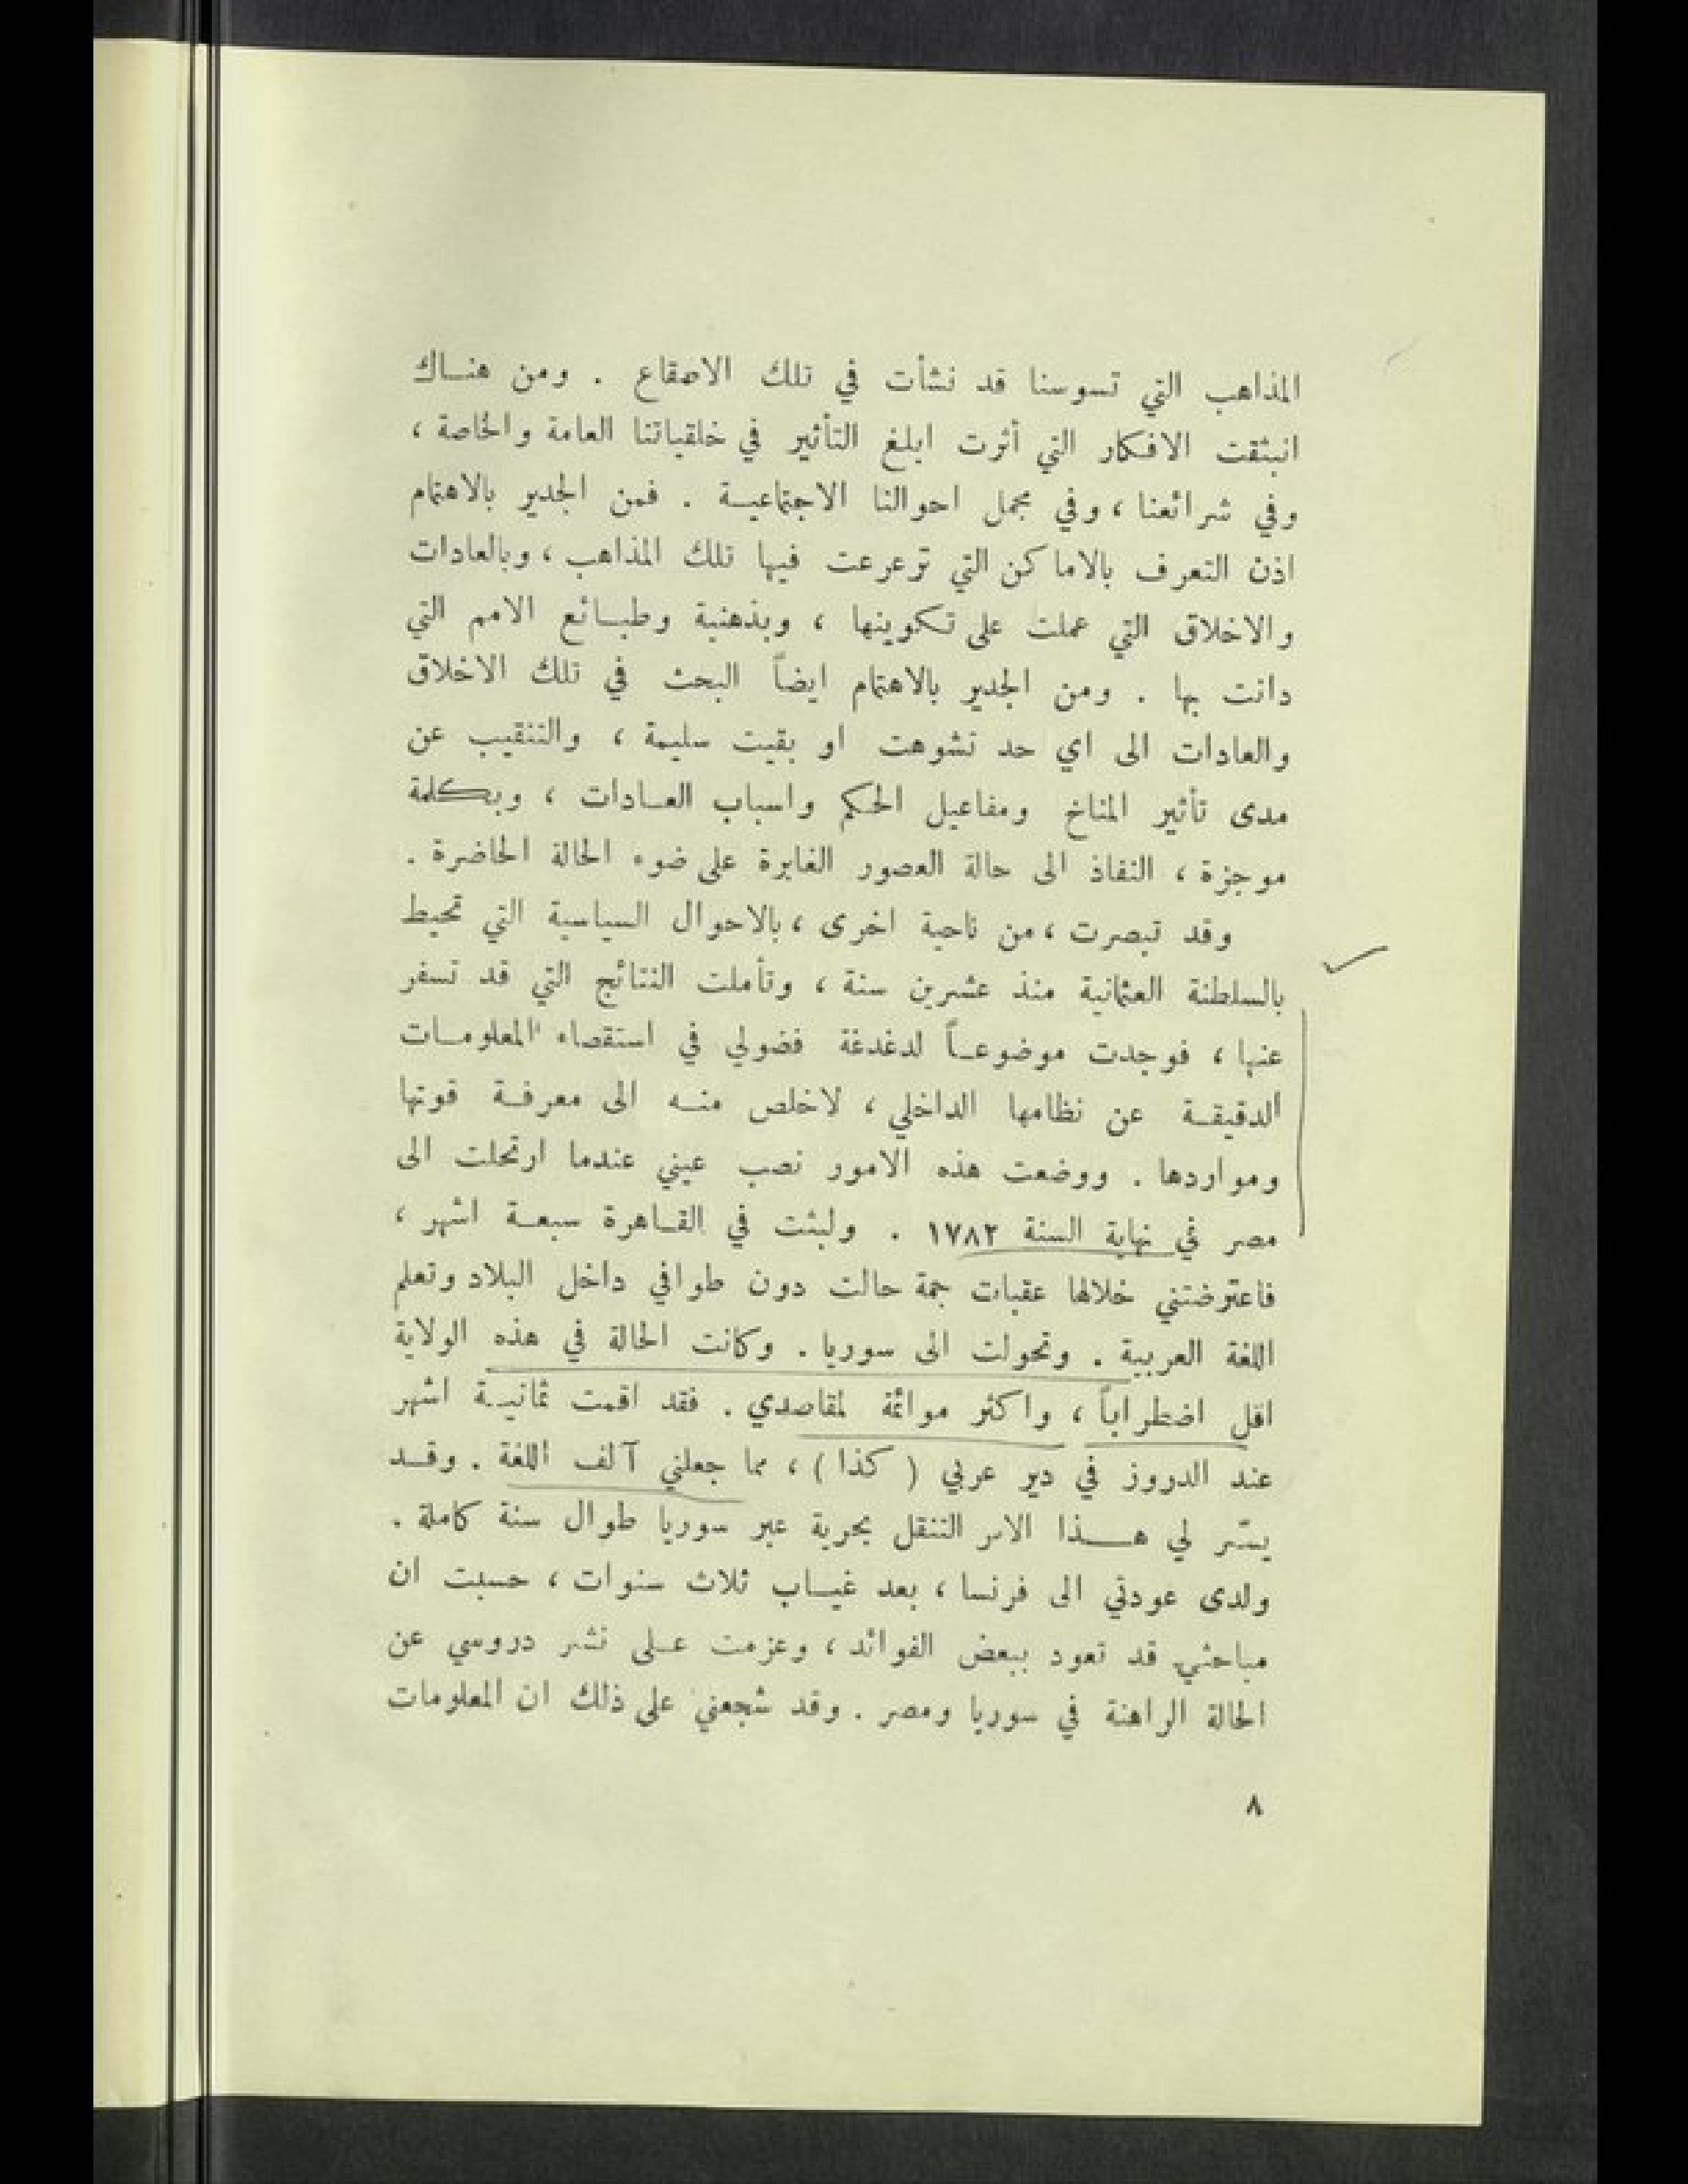 المذاهب التي تسوسنا قد نشأت في تلك الاصقاع . ومن هنـاك
انبثقت الافكار التي أثرت ابلغ التأثير في خلقياتنا العامة والخاصة ،
وفي شرائعنا ، وفي مجمل احوالنا الاجتماعيـة . فمن الجدير بالاهتمام
اذن التعرف بالاماكن التي ترعرعت فيها تلك المذاهب ، وبالعادات
والاخلاق التي عملت على تكوينها ، وبذهنية وطبـائع الامم التي
دانت بها . ومن الجدير بالاهتمام ايضاً البحث في تلك الاخلاق
والعادات الى اي حد تشوهت او بقيت سليمة ، والتنقيب عن
مدى تأثير المناخ ومفاعيل الحكم واسباب العـادات ، وبكلمة
موجزة ، النفاذ الى حالة العصور الغابرة على ضوء الحالة الحاضرة .
وقد تبصرت ، من ناحية اخرى ، بالاحوال السياسية التي تحيط
بالسلطنة العثمانية منذ عشرين سنة ، وتأملت النتائج التي قد تسفر
عنها ، فوجدت موضوعـاً لدغدغة فضولي في استقصاء المعلومـات
الدقيقـة عن نظامها الداخلي ، لاخلص منـه الى معرفـة قوتها
ومواردها . ووضعت هذه الامور نصب عيني عندما ارتحلت الى
مصر في نهاية السنة ١٧٨٢ . ولبثت في القـاهرة سبعـة اشهر ،
فاعترضتني خلالها عقبات جمة حالت دون طوافي داخل البلاد وتعلم
اللغة العربية . وتحولت الى سوريا . وكانت الحالة في هذه الولاية
اقل اضطراباً ، واكثر موائمة لمقاصدي . فقد اقمت ثمانيـة اشهر
عند الدروز في دير عربي ( كذا ) ، مما جعلني آلف اللغة . وقـد
يسّر لي هـذا الامر التنقل بحرية عبر سوريا طوال سنة كاملة .
ولدى عودتي الى فرنسا ، بعد غيـاب ثلاث سنوات ، حسبت ان
مباحثي قد تعود ببعض الفوائد ، وعزمت عـلى نشر دروسي عن
الحالة الراهنة في سوريا ومصر . وقد شجعني على ذلك ان المعلومات
٨